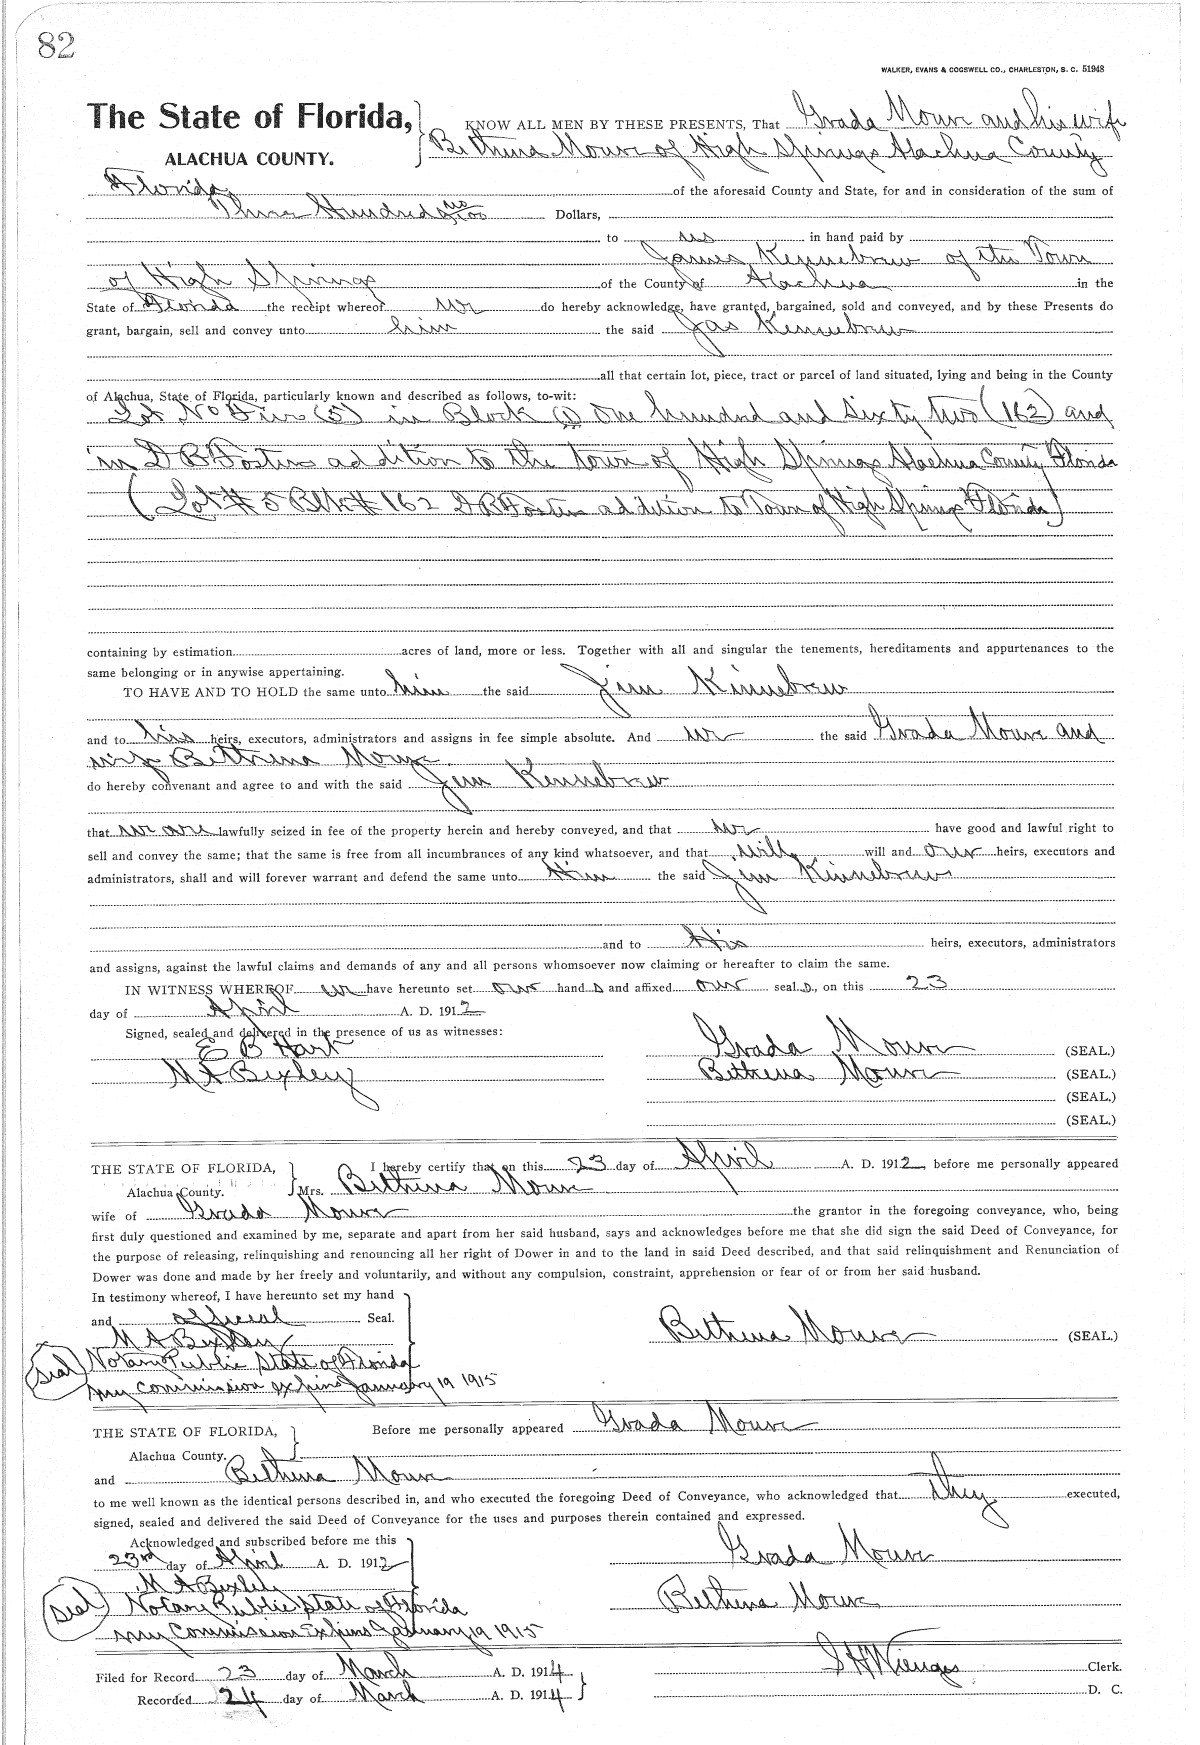 82
WALKER, EVANS & COGSWELL CO., CHARLESTON, S. C. 51948
The State of Florida,
ALACHUA COUNTY.
KNOW ALL MEN BY THESE PRESENTS, That Grada and his wife
Bethena of High Springs Alachua County
Florida of the aforesaid County and State, for and in consideration of the sum of
Three Hundred no/100 Dollars,
to us in hand paid by
James Kennebrew of the Town
of High Springs of the County of Alachua in the
State of Florida the receipt whereof we do hereby acknowledge, have granted, bargained, sold and conveyed, and by these Presents do
grant, bargain, sell and convey unto him the said Jas Kennebrew
all that certain lot, piece, tract or parcel of land situated, lying and being in the County
of Alachua, State of Florida, particularly known and described as follows, to-wit:
Lot No Five (5) in Block (1) One hundred and Sixty two (162) and
in D B Fosters addition to the town of High Springs Alachua County Florida
(Lot # 5 Blk # 162 D B Fosters addition to Town of High Springs Florida)
containing by estimation acres of land, more or less. Together with all and singular the tenements, hereditaments and appurtenances to the
same belonging or in anywise appertaining.
TO HAVE AND TO HOLD the same unto him the said Jim Kinnebrew
and to his heirs, executors, administrators and assigns in fee simple absolute. And we the said Grada and
wife Bethena
do hereby convenant and agree to and with the said Jim Kennebrew
that we are lawfully seized in fee of the property herein and hereby conveyed, and that we have good and lawful right to
sell and convey the same; that the same is free from all incumbrances of any kind whatsoever, and that will will and our heirs, executors and
administrators, shall and will forever warrant and defend the same unto Him the said Jim Kinnebrew
and to His heirs, executors, administrators
and assigns, against the lawful claims and demands of any and all persons whomsoever now claiming or hereafter to claim the same.
IN WITNESS WHEREOF we have hereunto set our hand s and affixed our seal s, on this 23
day of April A. D. 1912
Signed, sealed and delivered in the presence of us as witnesses:
E B Hart
M A Bixley
Grada (SEAL.)
Bethena (SEAL.)
(SEAL.)
(SEAL.)
THE STATE OF FLORIDA,
Alachua County.
I hereby certify that on this 23 day of April A. D. 1912, before me personally appeared
Mrs. Bethena
wife of Grada the grantor in the foregoing conveyance, who, being
first duly questioned and examined by me, separate and apart from her said husband, says and acknowledges before me that she did sign the said Deed of Conveyance, for
the purpose of releasing, relinquishing and renouncing all her right of Dower in and to the land in said Deed described, and that said relinquishment and Renunciation of
Dower was done and made by her freely and voluntarily, and without any compulsion, constraint, apprehension or fear of or from her said husband.
In testimony whereof, I have hereunto set my hand
and official Seal.
M A Bixley
Bethena (SEAL.)
Seal
Notary Public State of Florida
my commission expires January 19 1915
THE STATE OF FLORIDA,
Alachua County.
Before me personally appeared Grada
and Bethena
to me well known as the identical persons described in, and who executed the foregoing Deed of Conveyance, who acknowledged that they executed,
signed, sealed and delivered the said Deed of Conveyance for the uses and purposes therein contained and expressed.
Acknowledged and subscribed before me this
23rd day of April A. D. 1912
M A Bixley
Seal
Notary Public State of Florida
my Commission Expires January 19 1915
Grada
Bethena
Filed for Record 23 day of March A. D. 1914
Recorded 24 day of March A. D. 1914
S H Wienges Clerk.
D. C.